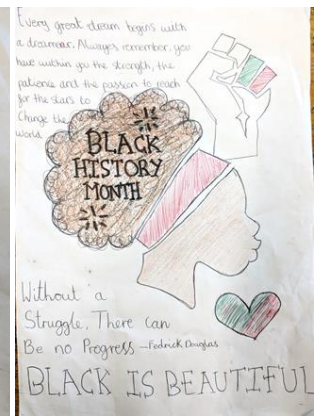 Every great dream begins with
a dreamer. Always remember, you
have within you the strength, the
patience and the passion to reach
for the stars to
Change the
world.
BLACK
HISTORY
MONTH
Without a
Struggle, There can
Be no Progress – Fedrick Douglas
BLACK IS BEAUTIFUL